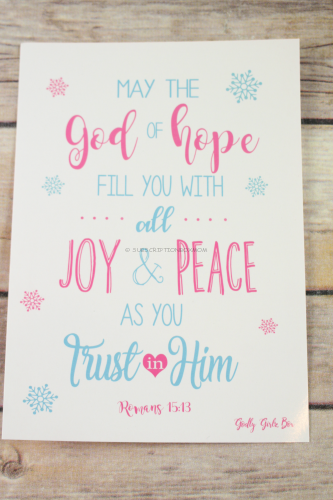 MAY THE
God OF hope
FILL YOU WITH
all
© SUBSCRIPTIONBOXMOM
JOY & PEACE
AS YOU
Trust in Him
Romans 15:13
Godly Girls Box